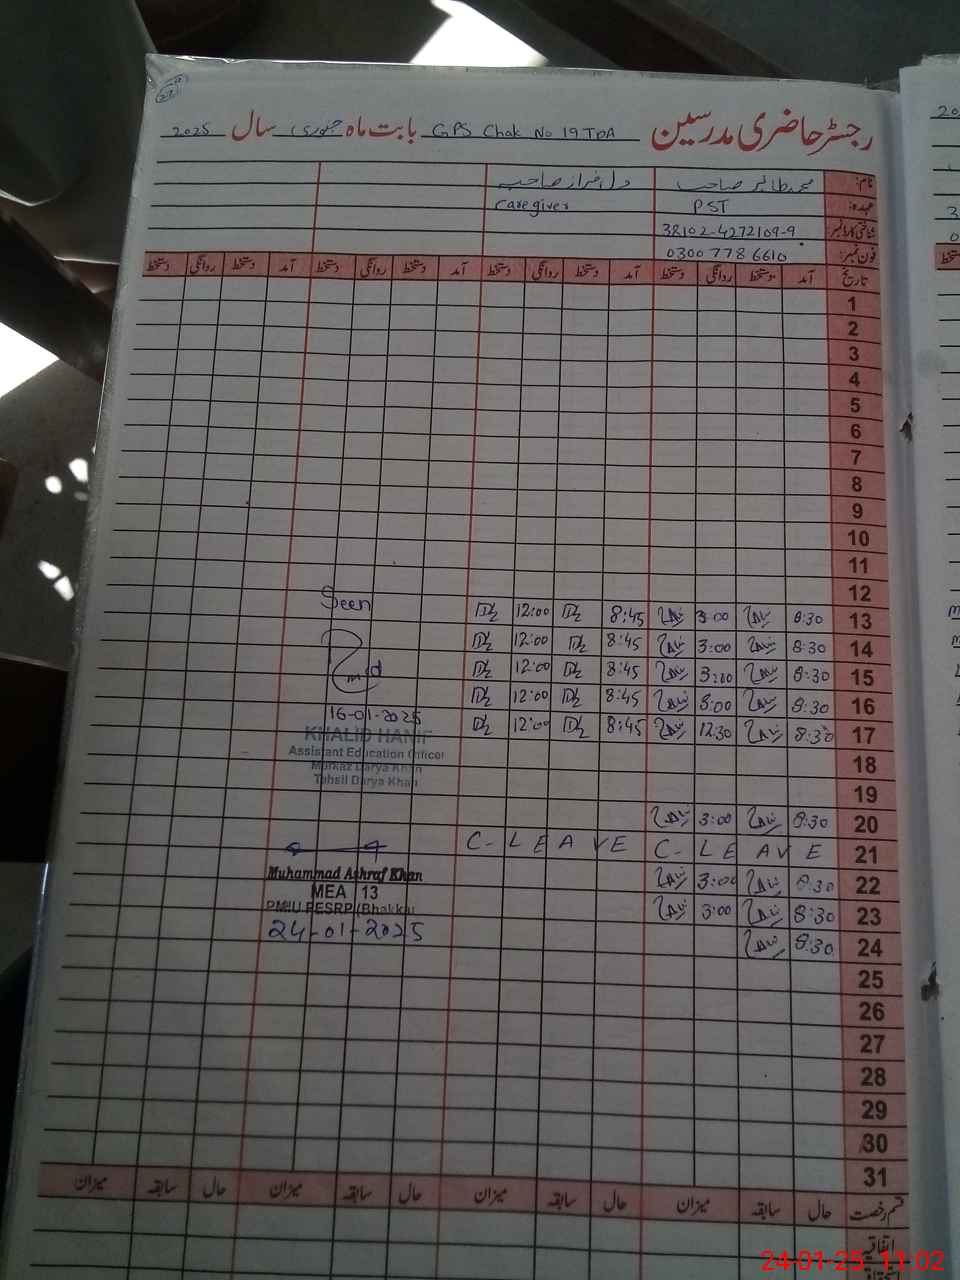 رجسٹر حاضری مدرسین GPS Chak No 19 TDA بابت ماہ جنوری سال 2025
نام: محمد طاہر صاحب دل افراز صاحب
عہدہ: PST Caregiver
شناختی کارڈ نمبر: 38102-4272109-9
فون نمبر: 0300 778 6610
تاریخ آمد دستخط روانگی دستخط آمد دستخط روانگی دستخط آمد دستخط روانگی دستخط آمد دستخط روانگی دستخط
1
2
3
4
5
6
7
8
9
10
11
12
13 8:30 3:00 8:45 12:00
14 8:30 3:00 8:45 12:00
15 8:30 3:00 8:45 12:00
16 8:30 3:00 8:45 12:00
17 8:30 12:30 8:45 12:00
18
19
20 8:30 3:00
21 C- L E A V E C- L E A V E
22 8:30 3:00
23 8:30 3:00
24 8:30
25
26
27
28
29
30
31
Seen
16-01-2025
KHALID HANIF
Assistant Education Officer
Markaz Darya Khan
Tahsil Darya Khan
Muhammad Ashraf Khan
MEA 13
PMIU PESRP (Bhakkar
24-01-2025
قسم رخصت حال سابقہ میزان حال سابقہ میزان حال سابقہ میزان حال سابقہ میزان
اتفاقیہ
24-01-25 11:02